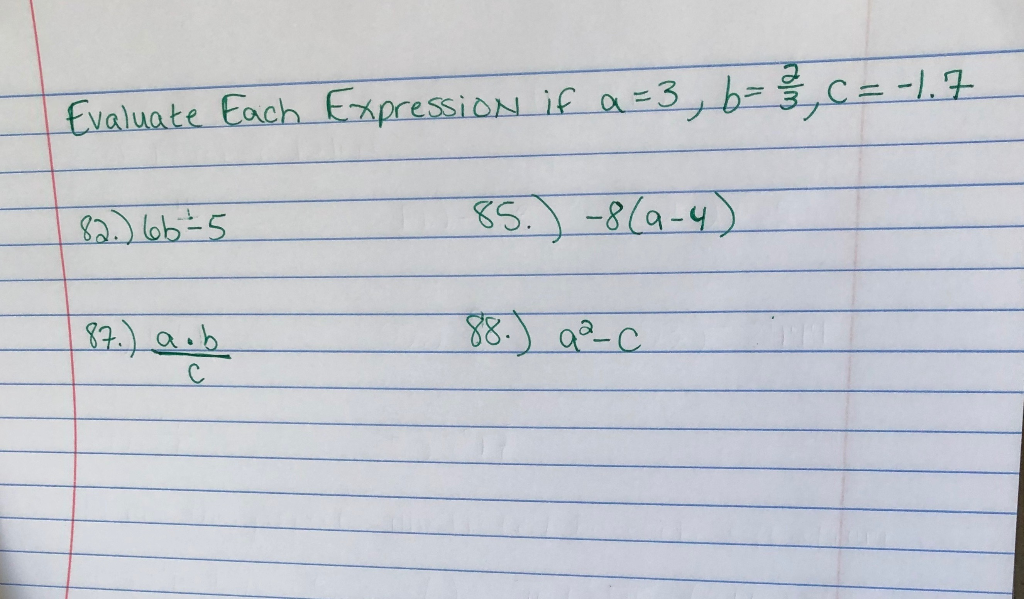 Evaluate Each Expression if a = 3, b = 2/3, c = -1.7
82.) 6b ÷ 5
85.) -8(a-4)
87.) a•b/c
88.) a²-c